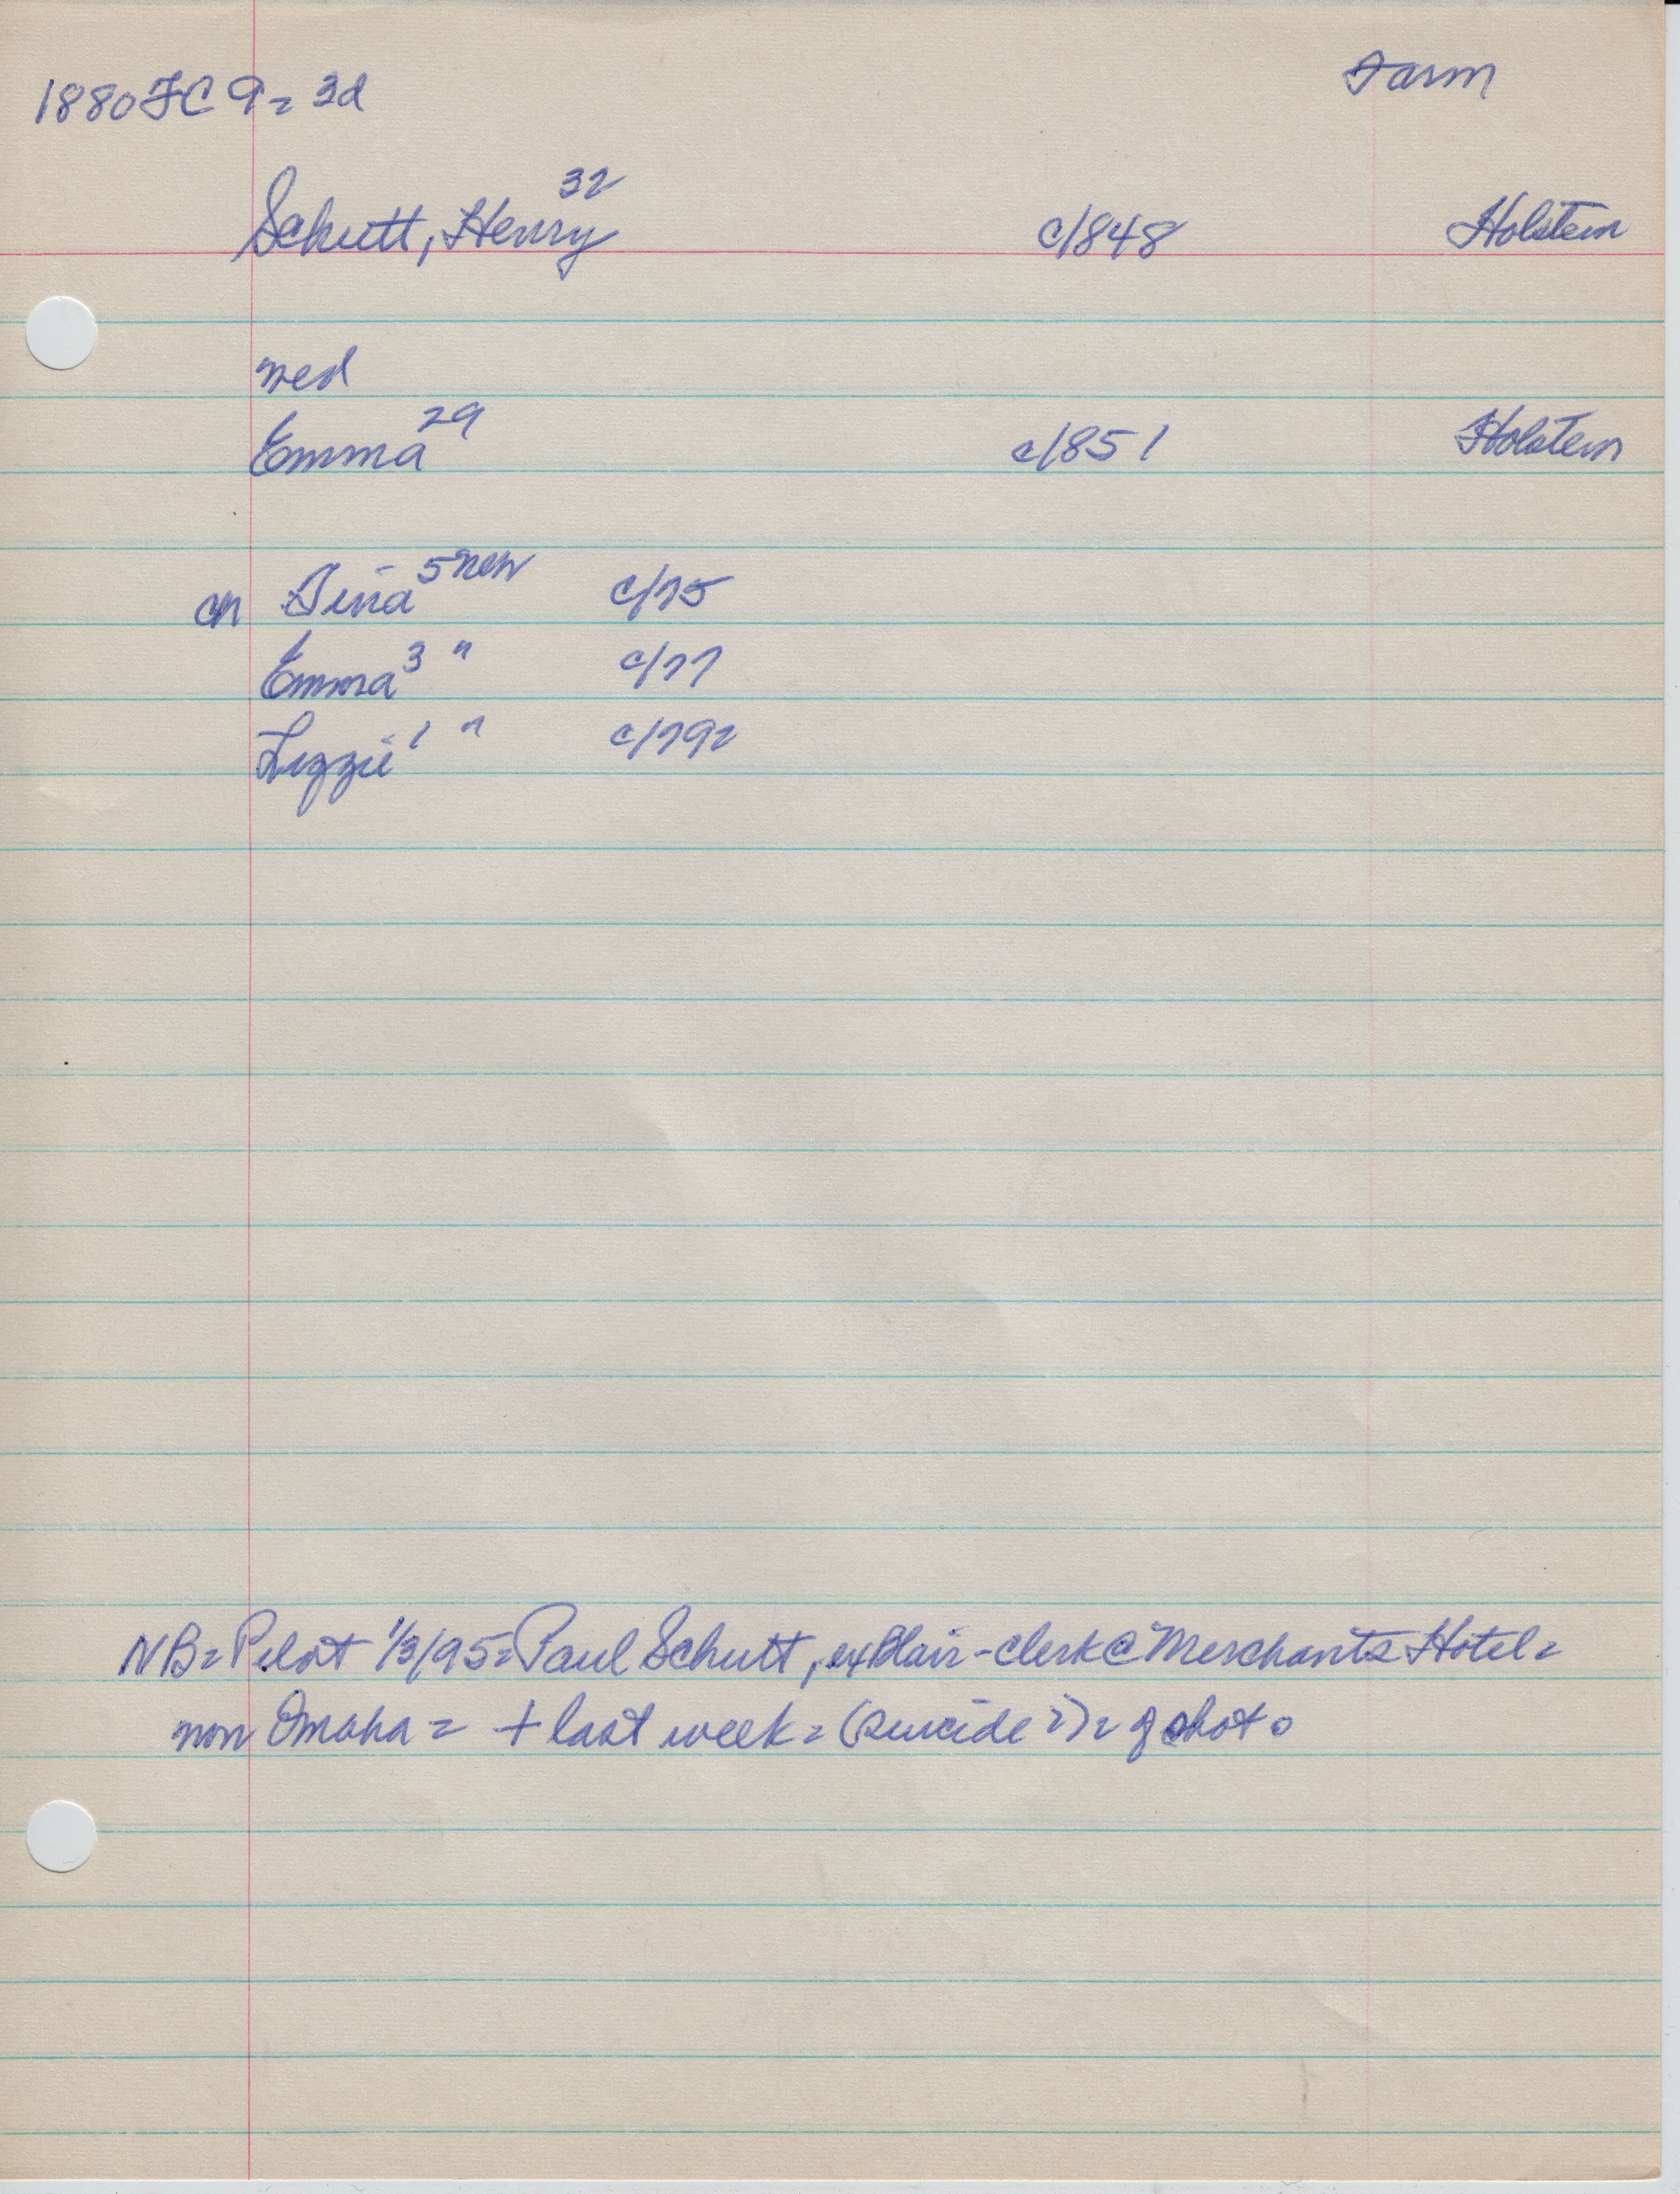 1880 FC 9 = 3d
Farm
Schutt, Henry 32 c/848 Holstein
med
Emma 29 c/851 Holstein
ch Tina 5 neb c/75
Emma 3 " c/77
Lizzie 1 " c/79=
NB= Pilot 1/3/95= Paul Schutt, ex Blair - clerk @ Merchants Hotel=
now Omaha = + last week = (suicide?) = g shot.